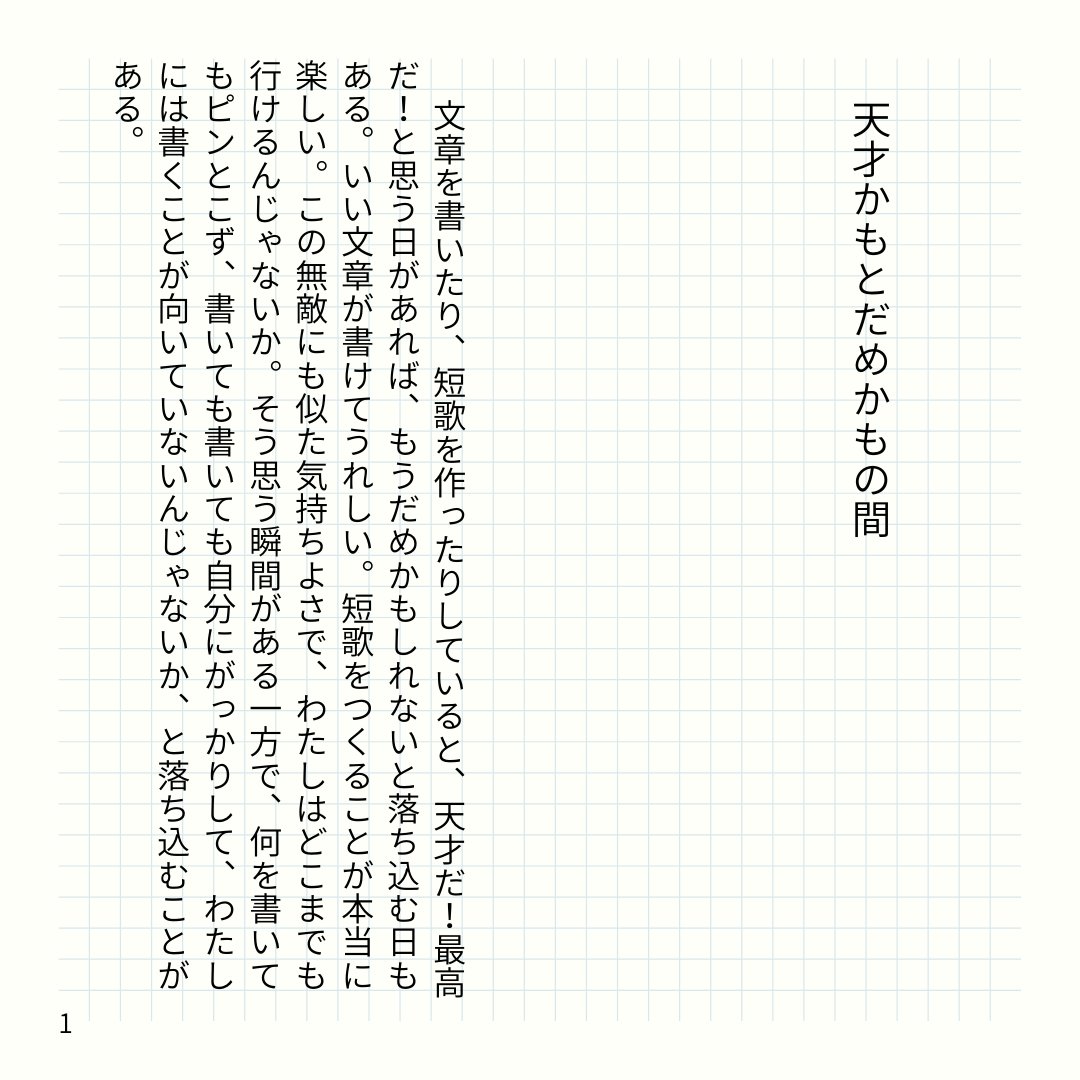 天才かもとだめかもの間
　文章を書いたり、短歌を作ったりしていると、天才だ！最高
だ！と思う日があれば、もうだめかもしれないと落ち込む日も
ある。いい文章が書けてうれしい。短歌をつくることが本当に
楽しい。この無敵にも似た気持ちよさで、わたしはどこまでも
行けるんじゃないか。そう思う瞬間がある一方で、何を書いて
もピンとこず、書いても書いても自分にがっかりして、わたし
には書くことが向いていないんじゃないか、と落ち込むことが
ある。
1